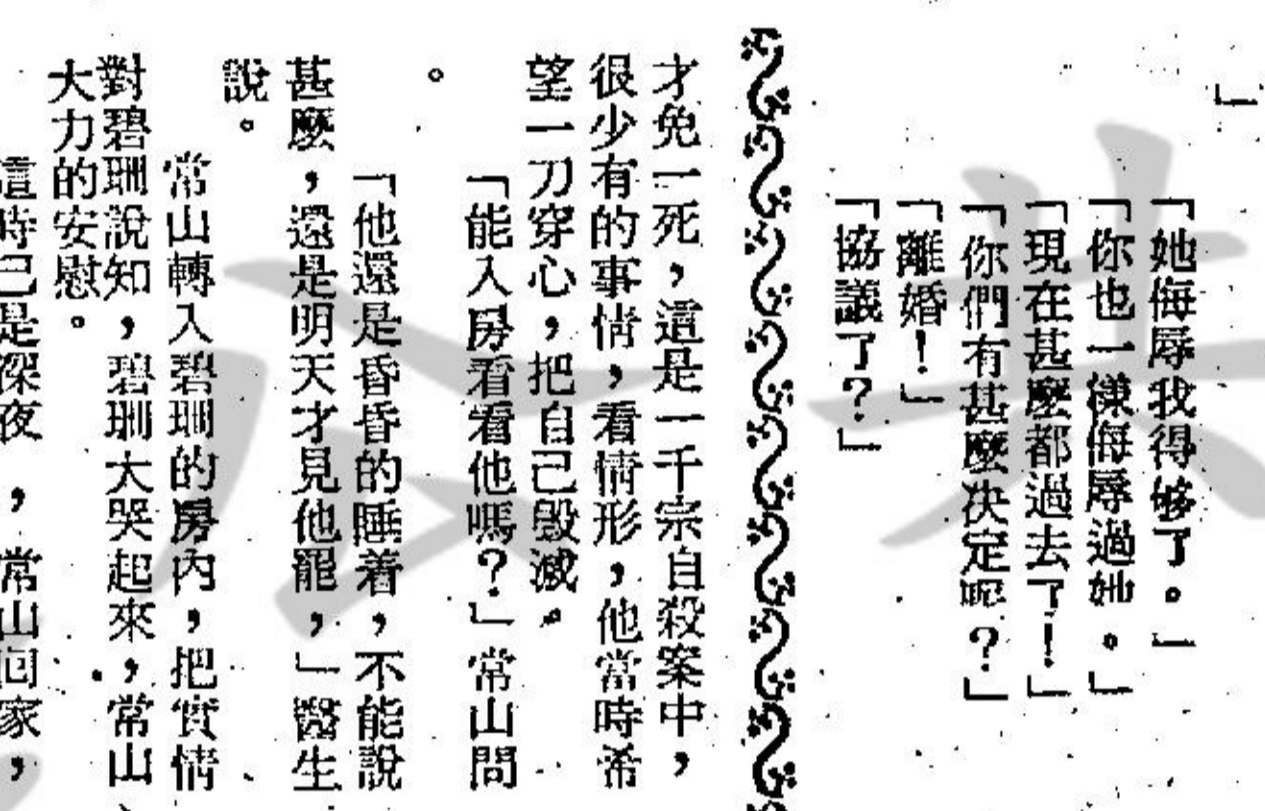 」
「她侮辱我得够了。」
「你也一樣侮辱過她。」
「現在甚麼都過去了！」
「你們有甚麼决定呢？」
「離婚！」
「協議了？」
才免一死，這是一千宗自殺案中，
很少有的事情，看情形，他當時希
望一刀穿心，把自己毀滅。
「能入房看看他嗎？」常山問
。
「他還是昏昏的睡着，不能說
甚麼，還是明天才見他罷，」醫生
說。
常山轉入碧珊的房內，把實情
對碧珊說知，碧珊大哭起來，常山
大力的安慰。
這時已是深夜，常山回家，